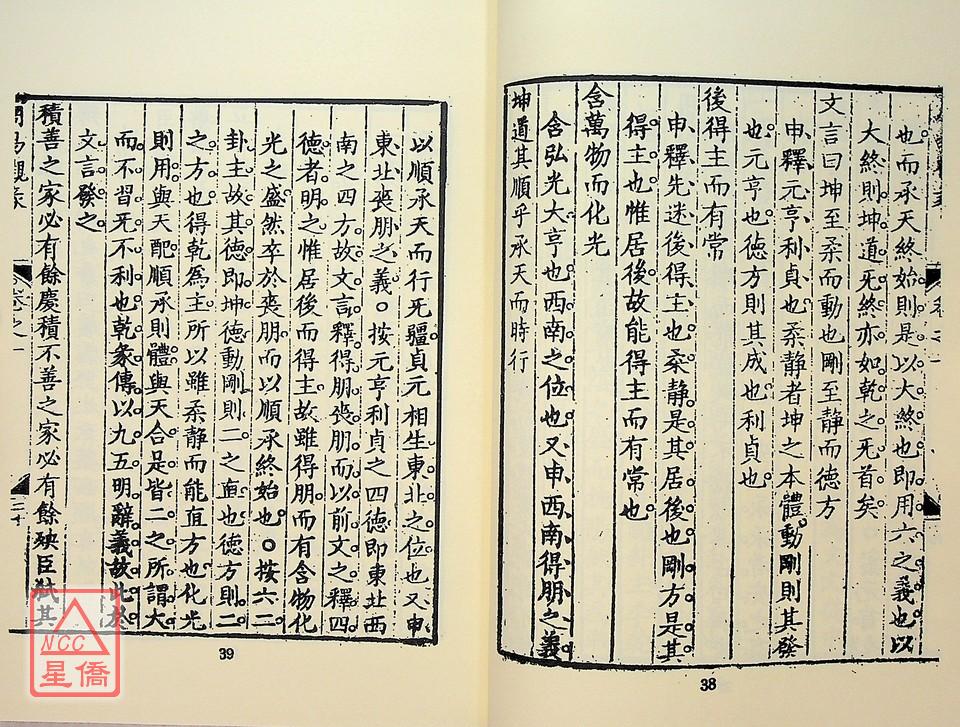 也而承天終始則是以大終也即用六之義也以
大終則坤道无終亦如乾之无首矣
文言曰坤至柔而動也剛至靜而德方
申釋元亨利貞也柔靜者坤之本體動剛則其發
也元亨也德方則其成也利貞也
後得主而有常
申釋先迷後得主也柔靜是其居後也剛方是其
得主也惟居後故能得主而有常也
含萬物而化光
含弘光大亨也西南之位也又申西南得朋之義
坤道其順乎承天而時行
38
以順承天而行无疆貞元相生東北之位也又申
東北喪朋之義○按元亨利貞之四德即東北西
南之四方故文言釋得朋喪朋而以前文之釋四
德者明之惟居後而得主故雖得朋而有含物化
光之盛然卒於喪朋而以順承終始也○按六二
卦主故其德即坤德動剛則二之直也德方則二
之方也得乾爲主所以雖柔靜而能直方也化光
則用與天配順承則體與天合是皆二之所謂大
而不習无不利也乾彖傳以九五明辭義故此於
文言發之
積善之家必有餘慶積不善之家必有餘殃臣弒其
周易觀彖
卷之一
二十
39
NCC
星僑